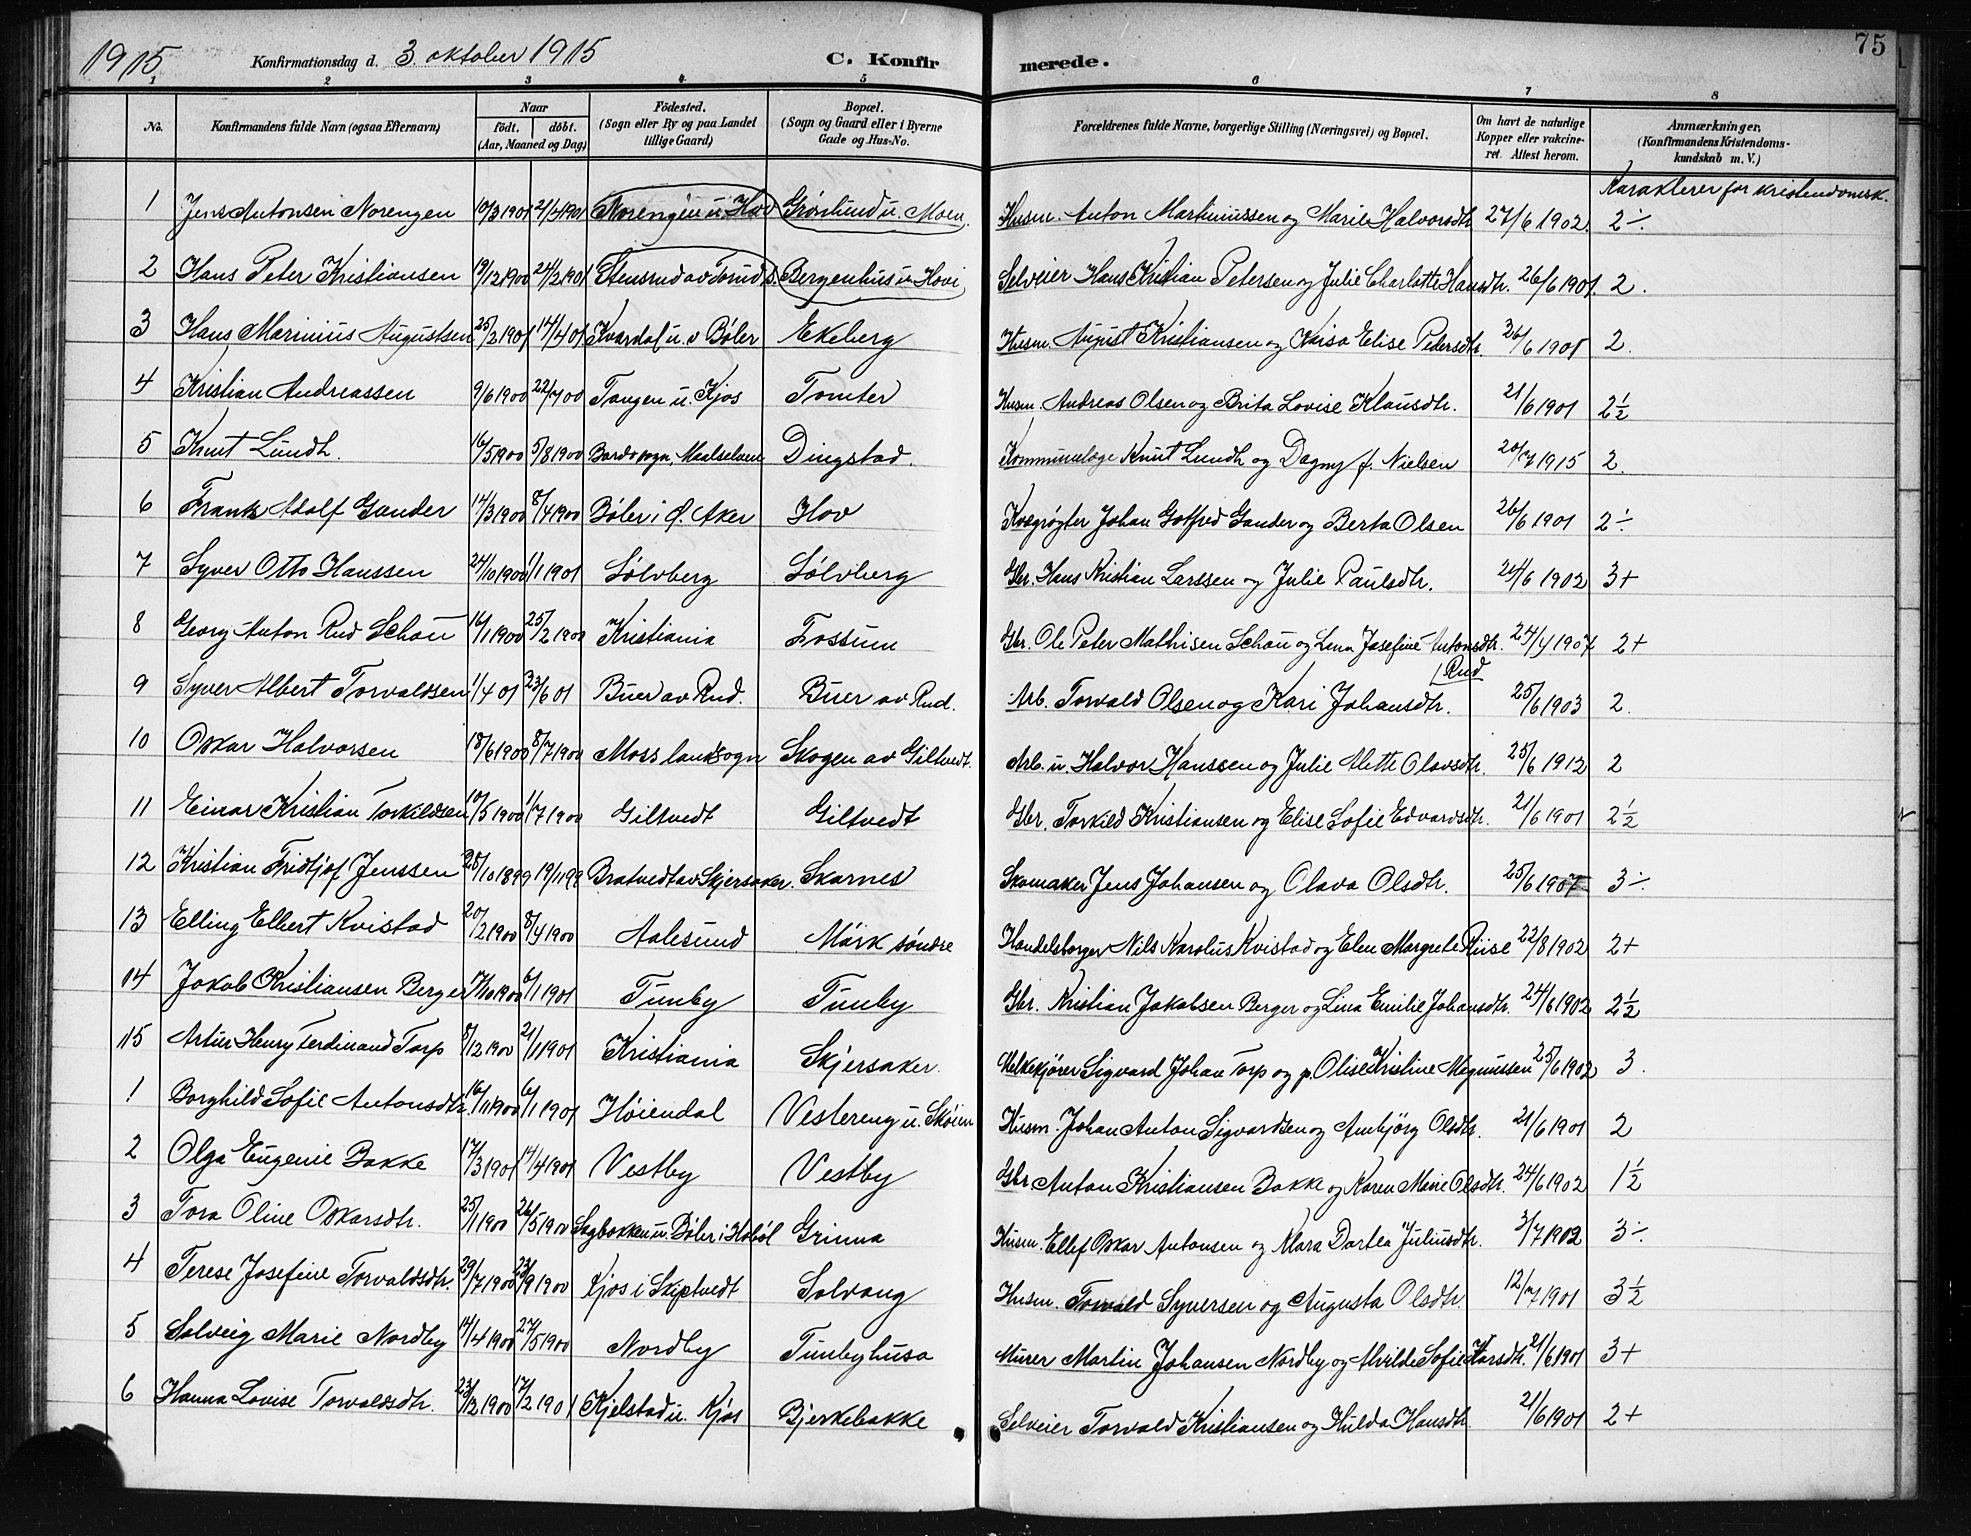 75
1915 Konfirmationsdag d. 3 oktober 1915 C. Konfirmerede.
1 2 3 4 5 6 7 8
No. Konfirmandens fulde Navn (ogsaa Efternavn) Naar født. døbt. (Aar, Maaned og Dag) Fødested. (Sogn eller By og paa Landet tillige Gaard) Bopæl. (Sogn og Gaard eller i Byerne Gade og Hus-No. Forældrenes fulde Navne, borgerlige Stilling (Næringsvei) og Bopæl. Om havt de naturlige Kopper eller vakcineret. Attest herom. Anmærkninger. (Konfirmandens Kristendomskundskab m. V.)
Karakterer for kristendomsk.
1 Jens Antonsen Norengen 10/3 1901 21/4 1901 Norengen u. Hov Grønlund u. Moen. Husm. Anton Martiniussen og Marie Halvorsdtr. 27/6 1902. 2÷
2 Hans Peter Kristiansen 19/12 1900 24/2 1901 Stensrud av Torud Bergenhus u. Hovi Selveier Hans Kristian Petersen og Julie Charlotte Hansdtr. 26/6 1901. 2.
3 Hans Marinius Augustsen 25/2 1901 14/4 01 Kvardal u. Bøler Ekeberg Husm. August Kristiansen og Elise Pedersdtr. 26/6 1901 2.
4 Kristian Andreassen 9/6 1900 22/7 00 Tangen u. Kjos Tomter Husm. Andreas Olsen og Brita Lovise Klausdtr. 21/6 1901 2½
5 Knut Lundh. 16/5 1900 5/8 1900 Bardosogn, Maalselven Dingstad. Kommunelæge Knut Lundh og Dagny f. Nielsen 20/7 1915 2.
6 Frantz Adolf Gander 14/3 1900 8/4 1900 Bøler i Ø. Aker Hov Kvægrøgter Johan Gotfred Gander og Berta Olsen 26/6 1901 2÷
7 Syver Otto Hanssen 24/10 1900 1/1 1901 Sølvberg Sølvberg Gbr. Hans Kristian Larssen og Julie Paulsdtr. 24/6 1902 3+
8 Georg Anton Rud Schou 16/1 1900 25/2 1900 Kristiania Fossum Gbr. Ole Peter Mathisen Schou og Lena Josefine Antonsdtr. Rud 24/4 1907 2+
9 Syver Albert Torvaldsen 1/4 01 23/6 01 Buer av Rud. Buer av Rud. Arb. Torvald Olsen og Kari Johansdtr. 25/6 1903 2.
10 Oskar Halvorsen 18/6 1900 8/7 1900 Moss landsogn Skogen av Giltvedt. Arb. u. Halvor Hanssen og Julie Alette Olavsdtr. 25/6 1912 2
11 Einar Kristian Torkildsen 10/5 1900 1/7 1900 Giltvedt Giltvedt Gbr. Torkild Kristiansen og Elise Sofie Edvardsdtr. 21/6 1901 2½
12 Kristian Fridtjof Jenssen 25/10 1899 19/11 99 Bratvedt av Skjersaker. Skarnes Skomaker Jens Johansen og Olava Olsdtr. 25/6 1907 3÷
13 Elling Elbert Kvistad 20/2 1900 8/4 1900 Aalesund Mørk søndre Handelsborger Nils Karolus Kvistad og Elen Margrete Riise 22/8 1902 2+
14 Jakob Kristiansen Berger 7/10 1900 6/1 1901 Tunby Tunby Gbr. Kristian Jakobsen Berger og Lina Emilie Johansdtr. 24/6 1902 2½
15 Artur Henry Ferdinand Torp 8/12 1900 21/1 1901 Kristiania Skjersaker. Melkekjører Sigvard Johan Torp og Olise Kristine Magnussen 25/6 1902 3.
1 Borghild Sofie Antonsdtr. 16/11 1900 6/1 1901 Høiendal Vestereng u. Skøien Husm. Johan Anton Sigvardsen og Anbjørg Olsdtr. 21/6 1901 2
2 Olga Eugenie Bakke 17/3 1901 14/4 1901 Vestby Vestby Gbr. Anton Kristiansen Bakke og Karen Marie Olsdtr. 24/6 1902 1½
3 Tora Oline Oskarsdtr. 25/1 1900 26/5 1900 Sagbakken u. Bøler i Hobøl Grinna Husm. Ellef Oskar Antonsen og Klara Dortea Juliusdtr. 3/7 1902 3÷
4 Terese Josefine Torvaldsdtr. 29/7 1900 23/9 1900 Kjos i Skiptvedt Solvang Husm. Torvald Syversen og Augusta Olsdtr. 12/7 1901 3½
5 Solveig Marie Nordby 14/4 1900 27/5 1900 Nordby Tunbyhusa Murer Martin Johansen Nordby og Alvilde Sofie 21/6 1901 3+
6 Hanna Lovise Torvaldsdtr. 23/12 1900 17/2 1901 Kjelstad u. Kjos Bjerkebakke Selveier Torvald Kristiansen og Hulda Hansdtr. 21/6 1901 2+